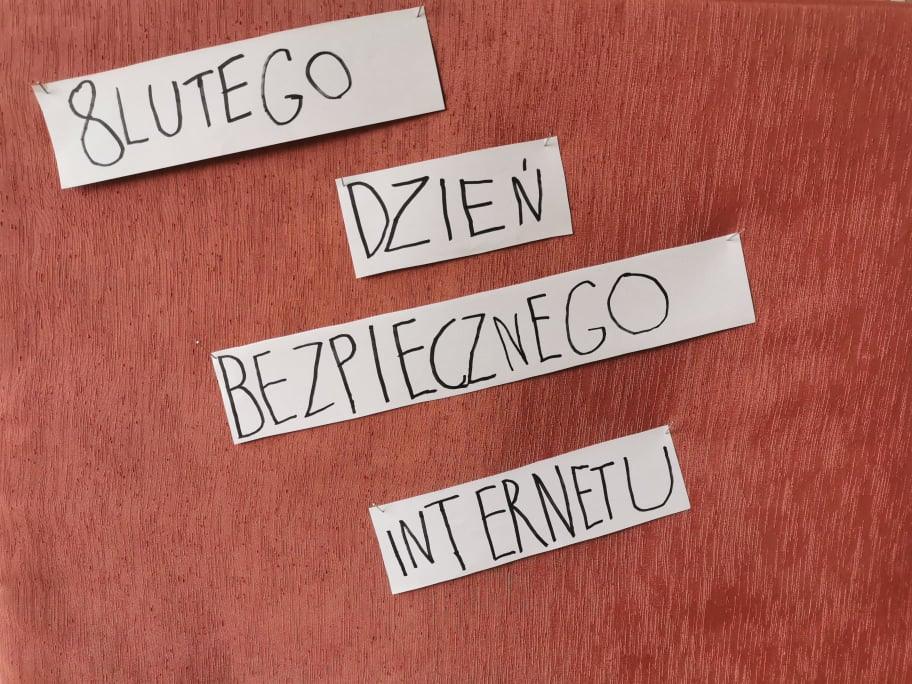 8 LUTEGO
DZIEŃ
BEZPIECZNEGO
INTERNETU